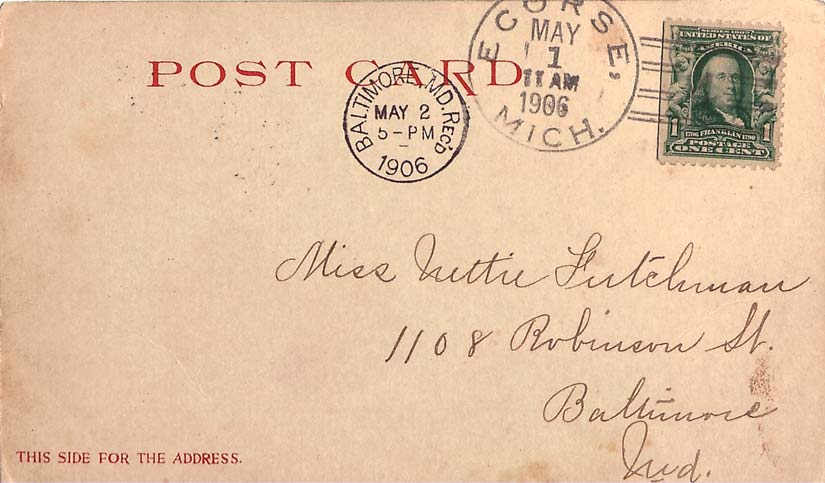 POST CARD
ECORSE, MICH.
MAY
1
11 AM
1906
BALTIMORE, MD. REC'D
MAY 2
5-PM
1906
SERIES 1902
UNITED STATES OF
AMERICA
1706 FRANKLIN 1790
POSTAGE
1 ONE CENT 1
Miss Nettie Futchman
1108 Robinson St.
Baltimore
Md.
THIS SIDE FOR THE ADDRESS.